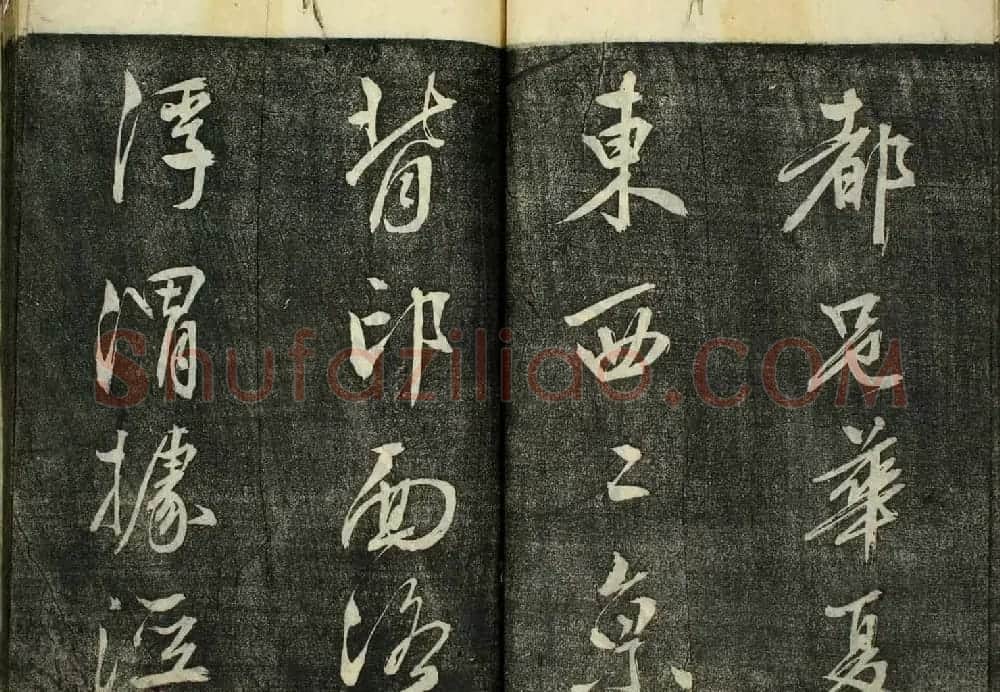 都邑華夏
東西二京
背邙面洛
浮渭據涇
Shufaziliao.COM